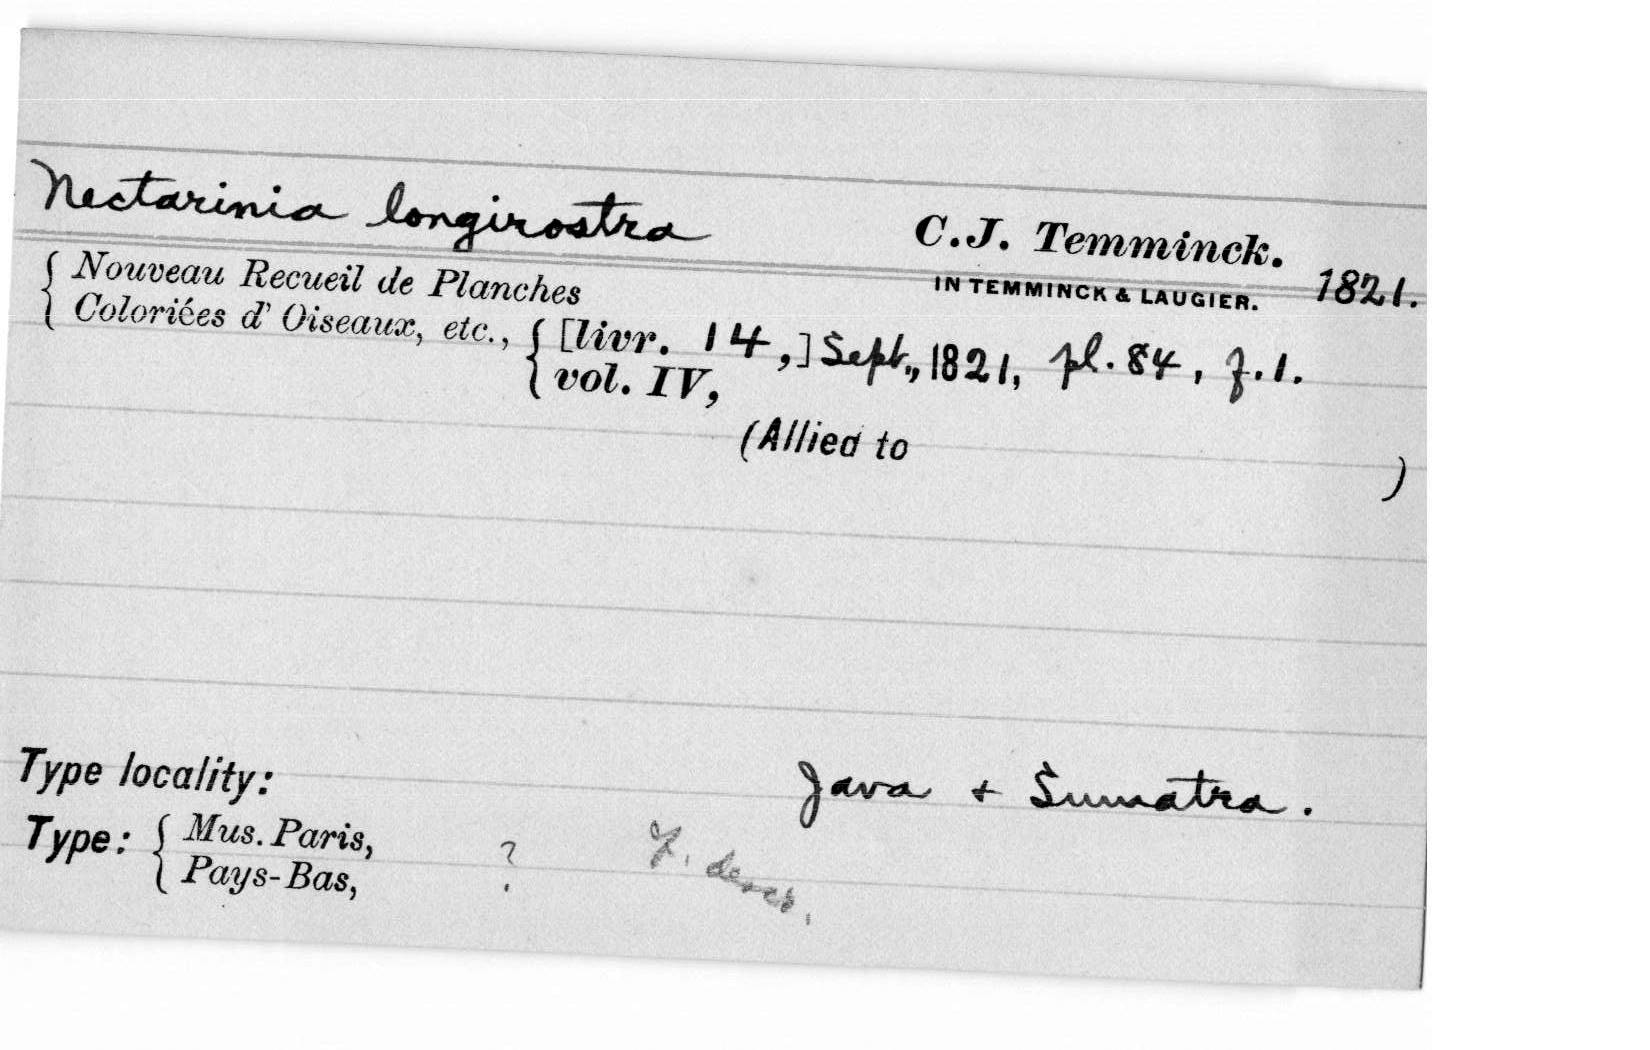 Nectarinia longirostra C.J. Temminck.
IN TEMMINCK & LAUGIER. 1821.
{ Nouveau Recueil de Planches
Coloriées d' Oiseaux, etc., { [livr. 14,] Sept., 1821, pl. 84, f. 1.
vol. IV,
(Allied to )
Type locality: Java + Sumatra.
Type: { Mus. Paris, ?
Pays-Bas, descr.